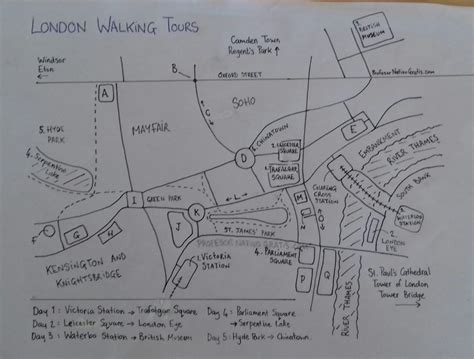 LONDON WALKING TOURS
Windsor
Eton
Camden Town
Regent's Park
3. BRITISH
MUSEUM
B
OXFORD STREET
A
SOHO
C
5. HYDE
PARK
MAYFAIR
4. Serpentine
Lake
5. CHINATOWN
D
2. LEICESTER
SQUARE
1. TRAFALGAR
SQUARE
E
EMBANKMENT
RIVER THAMES
SOUTH BANK
I
GREEN PARK
L
K
M
CHARING
CROSS
STATION
O
ST. JAMES' PARK
F
G
H
J
PROFESOR NATIVO GRATIS
KENSINGTON AND
KNIGHTSBRIDGE
1. VICTORIA
STATION
4. PARLIAMENT
SQUARE
3. WATERLOO
STATION
2. LONDON
EYE
P
Q
RIVER THAMES
St. Paul's Cathedral
Tower of London
Tower Bridge
Day 1: Victoria Station → Trafalgar Square
Day 2: Leicester Square → London Eye
Day 3: Waterloo Station → British Museum
Day 4: Parliament Square
→ Serpentine Lake
Day 5: Hyde Park → Chinatown